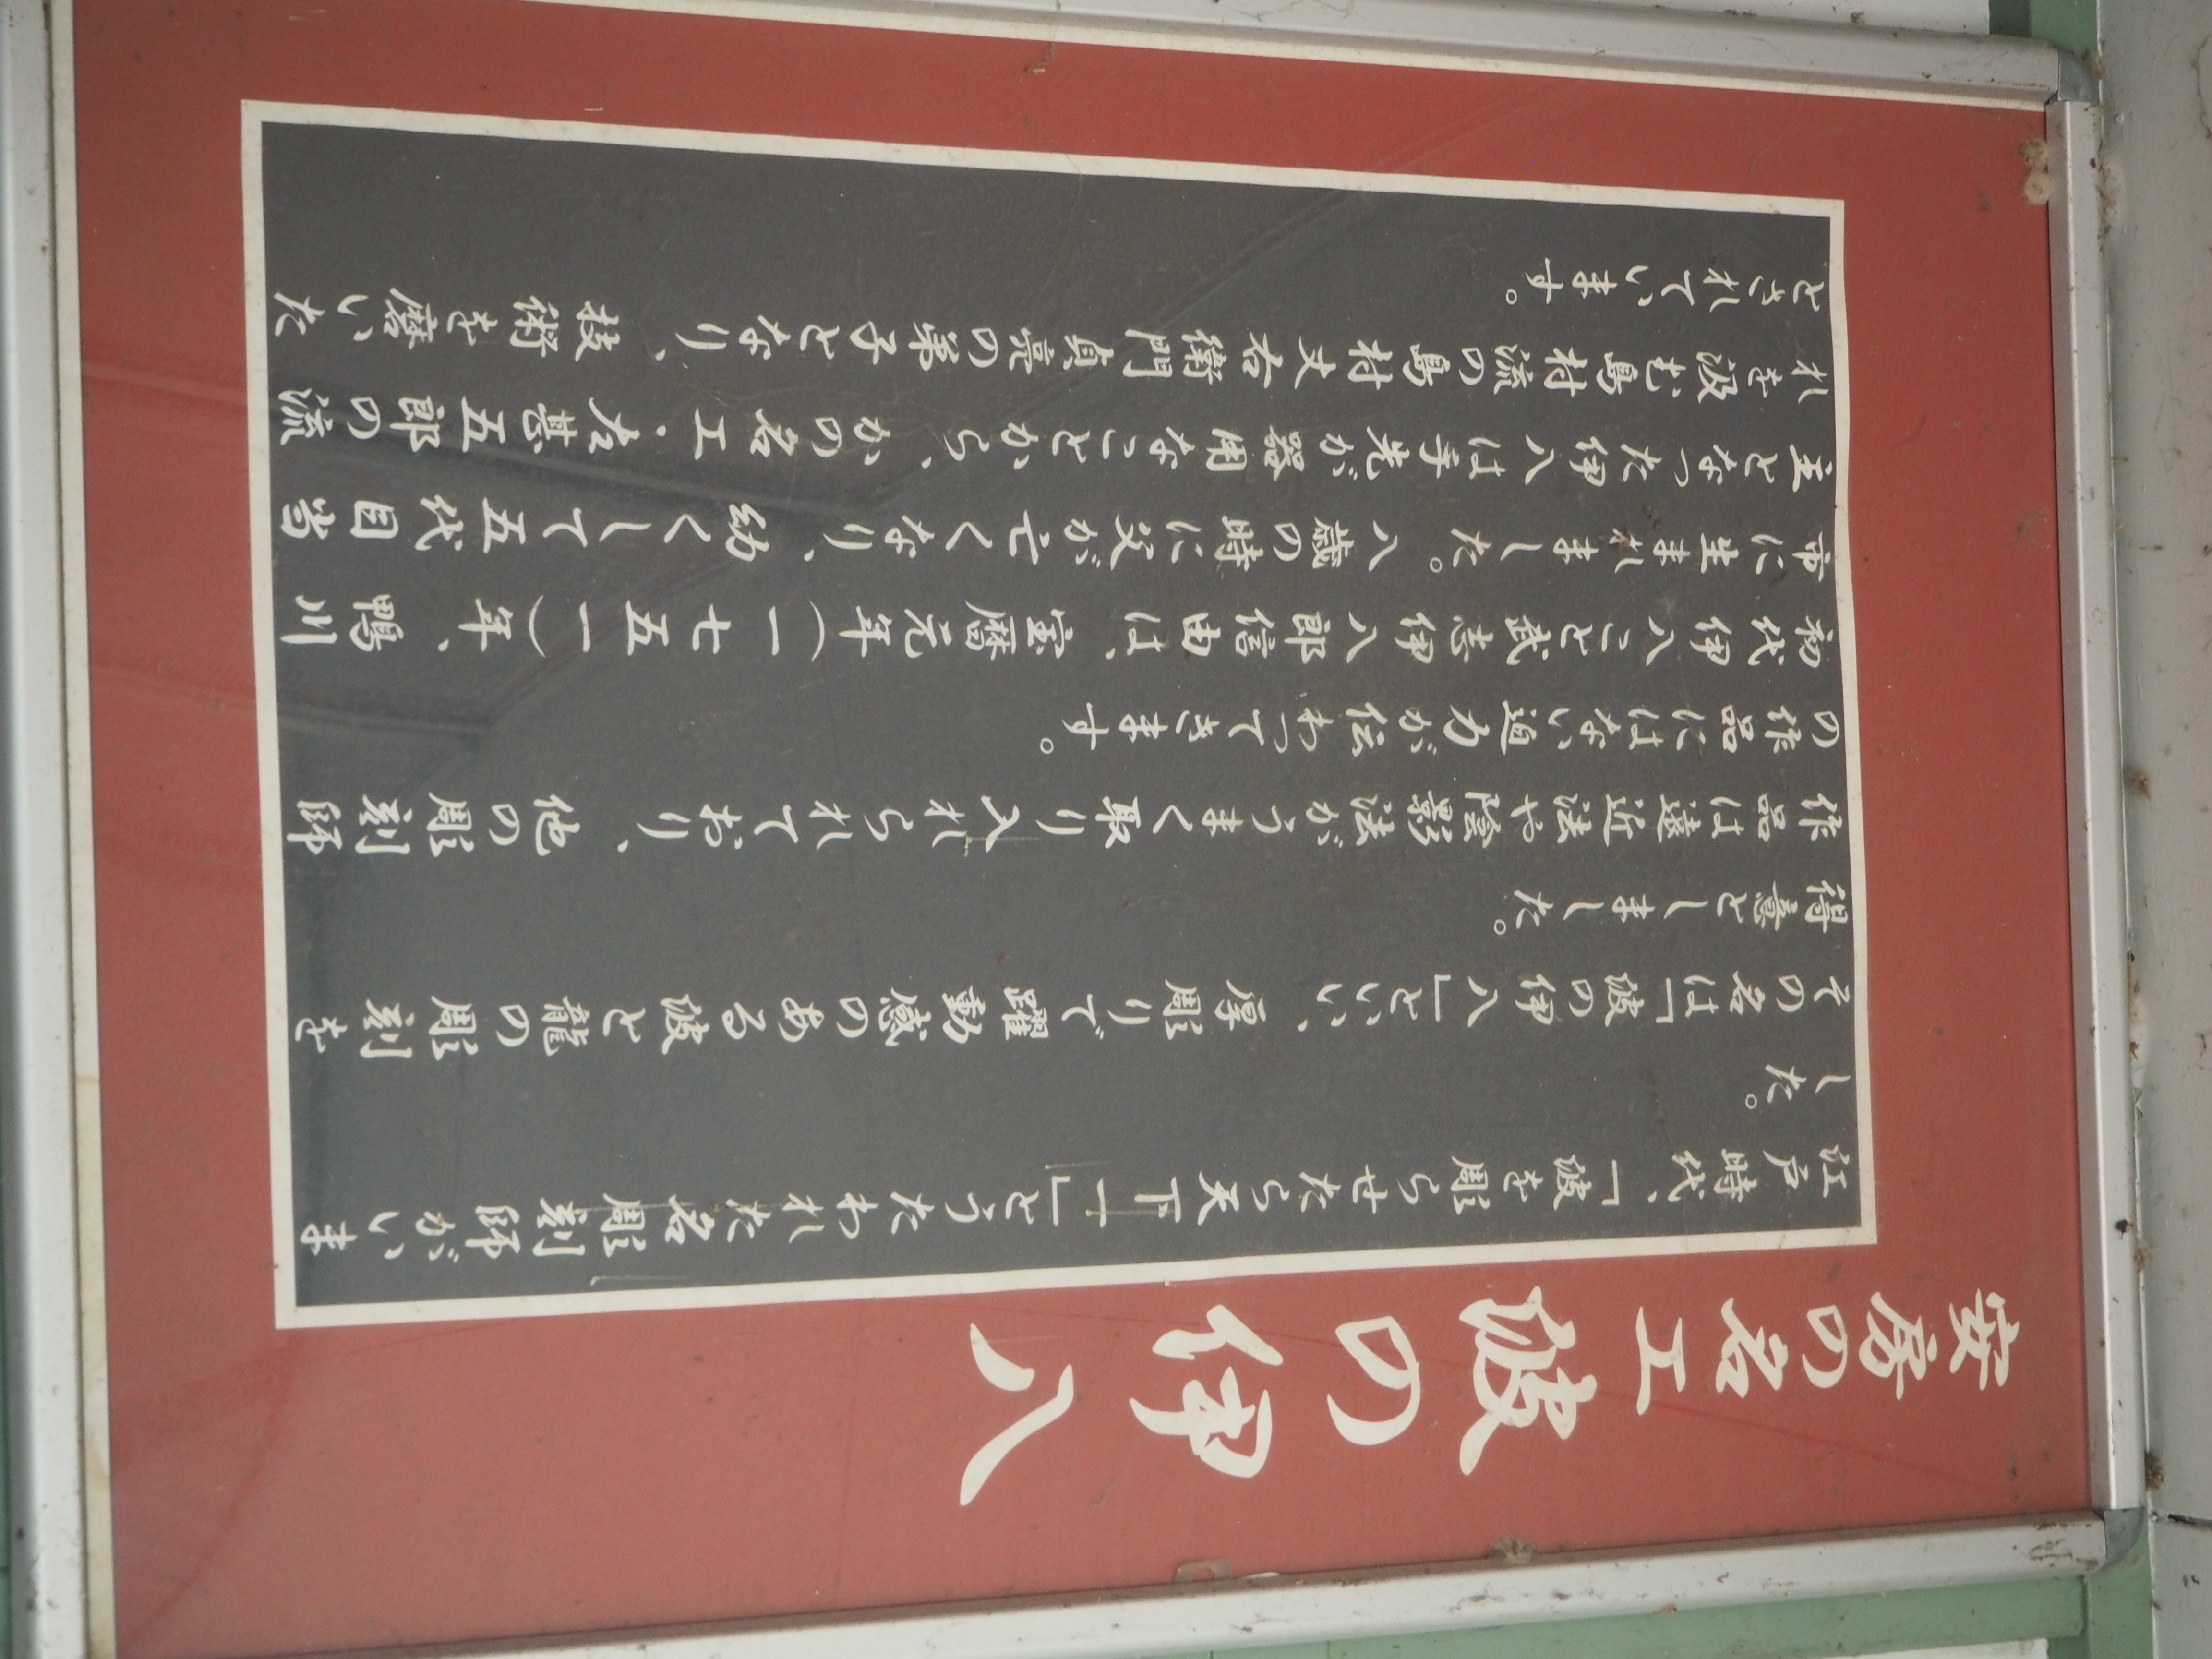 安房の名工 波の伊八
江戸時代、「波を彫らせたら天下一」とうたわれた名彫刻師がいま
した。
その名は「波の伊八」といい、厚彫りで躍動感のある波と龍の彫刻を
得意としました。
作品は遠近法や陰影法がうまく取り入れられており、他の彫刻師
の作品にはない迫力が伝わってきます。
初代伊八こと武志伊八郎信由は、宝暦元年(一七五一)年、鴨川
市に生まれました。八歳の時に父が亡くなり、幼くして五代目当
主となった伊八は手先が器用なことから、かの名工・左甚五郎の流
れを汲む島村流の島村丈右衛門貞亮の弟子となり、技術を磨いた
とされています。